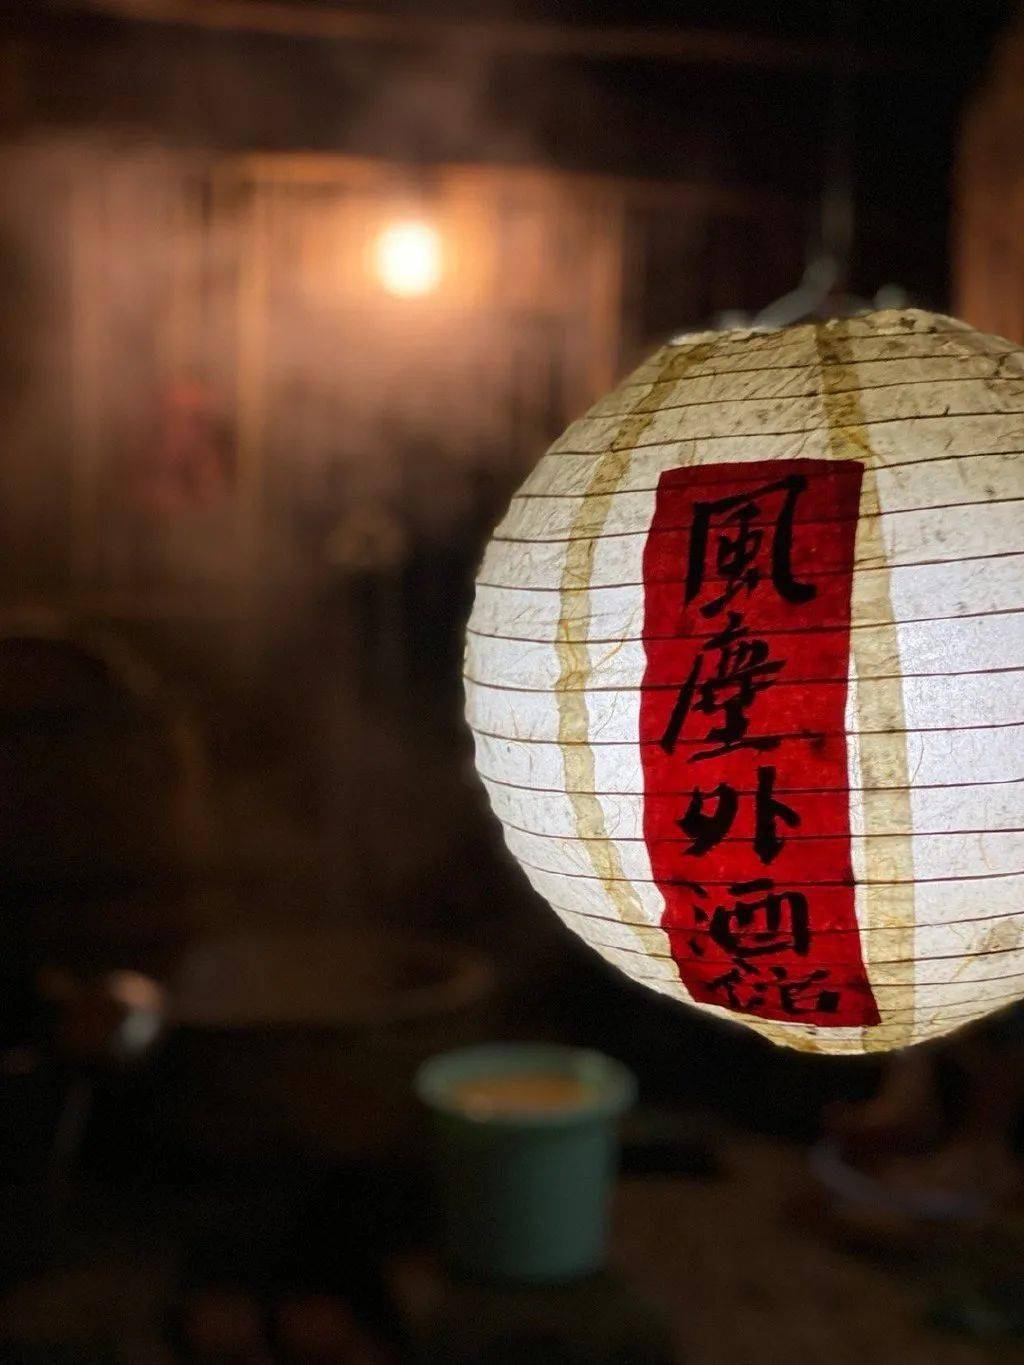 風塵外酒館